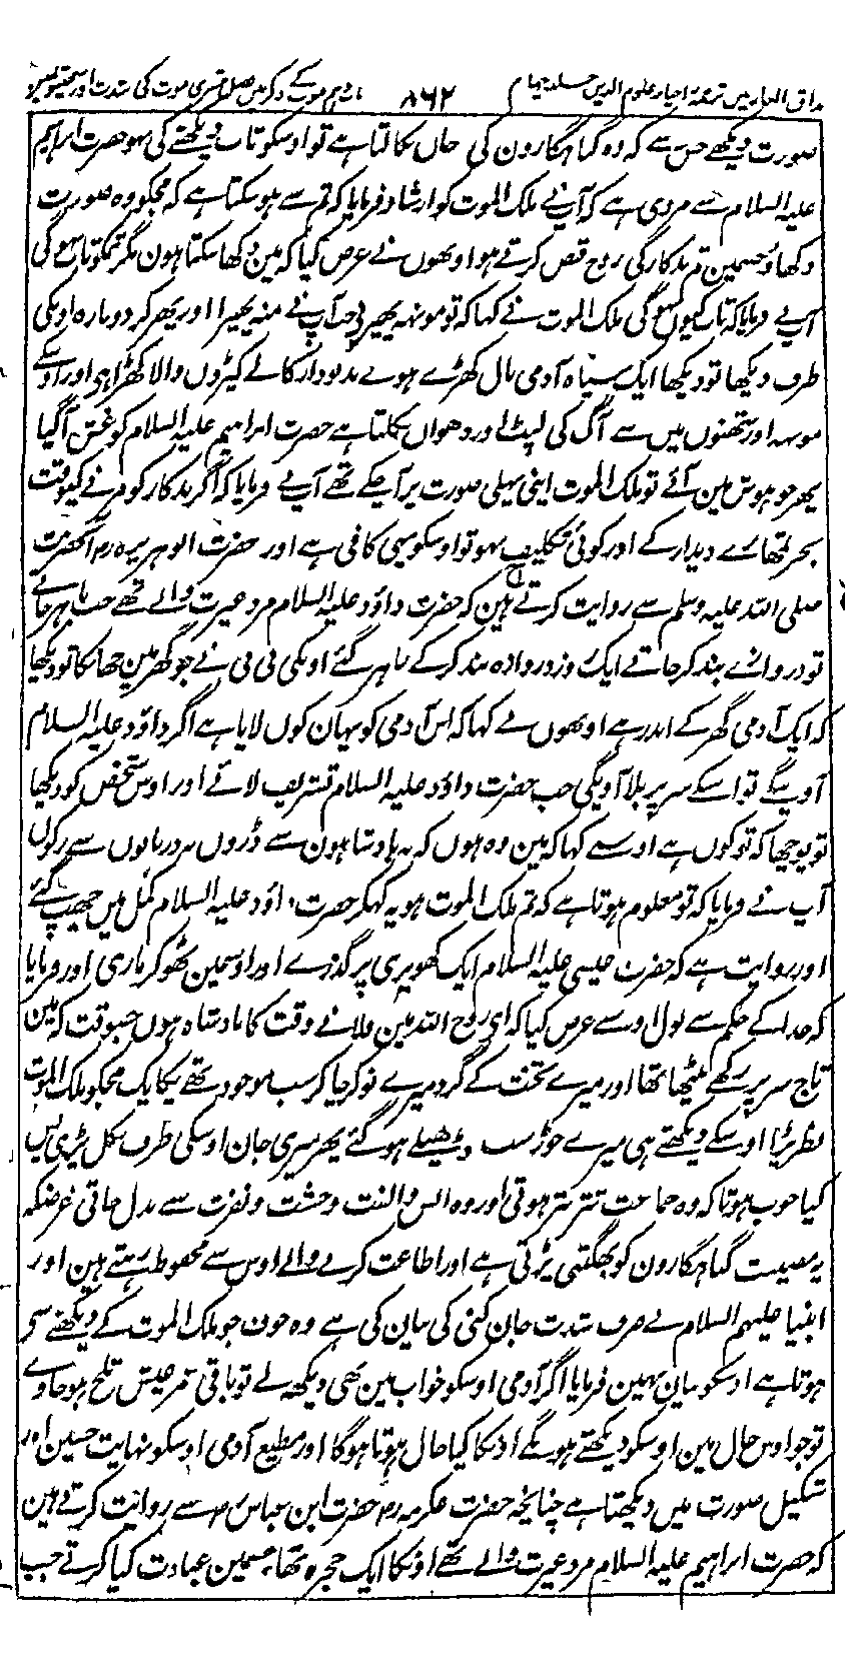 مذاق العارفین ترجمہ احیاء علوم الدین جلد چہارم ۸۶۲ باب دہم موت کے ذکر میں فصل تیسری موت کی شدت اور سختیوں میں
صورت دیکھے جس سے کہ وہ گناہگارون کی جان نکالتا ہے تو اوسکو تاب دیکھنے کی نہو حضرت ابراہیم
علیہ السلام سے مروی ہے کہ آپ نے ملک الموت کو ارشاد فرمایا کہ تم سے ہو سکتا ہے کہ مجکو وہ صورت
دکھاؤ جسمین تم بدکار کی روح قبض کرتے ہو اوںھوں نے عرض کیا کہ مین دکھا سکتا ہون مگر تمکو تاب نہوگی
آپ نے فرمایا کہ تاب کیوں نہوگی ملک الموت نے کہا کہ تو مونہہ پھیر لیجے آپ نے منہ پھیرا اور پھر کر دوبارہ اونکی
طرف دیکھا تو دیکھا ایک سیاہ آدمی بال کھڑے ہوئے بدبودار کالے کپڑوں والا کھڑا ہی اور اوسکے
مونہہ اور نتھنوں میں سے آگ کی لپٹ اور دھواں نکلتا ہے حضرت ابراہیم علیہ السلام کو غش آگیا
پھر جو ہوش مین آئے تو ملک الموت اپنی پہلی صورت پر آچکے تھے آپ نے فرمایا کہ اگر بدکار کو مرنے کیوقت
بجز تمھارے دیدار کے اور کوئی تکلیف نہو تو اوسکو یہی کافی ہے اور حضرت ابو ہریرہ رض آنحضرت
صلی اللہ علیہ وسلم سے روایت کرتے ہین کہ حضرت داؤد علیہ السلام مرد غیرت والے تھے جب باہر جاتے
تو دروازے بند کر جاتے ایک روز دروازہ بند کرکے باہر گئے اونکی بی بی نے جو گھر مین جھانکا تو دیکھا
کہ ایک آدمی گھر کے اندر ہے اوںھوں نے کہا کہ اس آدمی کو یہان کون لایا ہے اگر داؤد علیہ السلام
آوینگے تو اسکے سر پر بلا آویگی جب حضرت داؤد علیہ السلام تشریف لائے اور اوس شخص کو دیکھا
تو پوچھا کہ تو کون ہے اوسنے کہا کہ مین وہ ہوں کہ نہ بادشاہون سے ڈروں نہ دربانوں سے رکوں
آپ نے فرمایا کہ تو معلوم ہوتا ہے کہ تم ملک الموت ہو یہ کہکر حضرت داؤد علیہ السلام کمل میں چھپ گئے
اور روایت ہے کہ حضرت عیسی علیہ السلام ایک کھوپری پر گذرے اور اوسمین ٹھوکر ماری اور فرمایا
کہ خدا کے حکم سے بول اوسنے عرض کیا کہ ای روح اللہ مین فلانے وقت کا بادشاہ ہوں جسوقت کہ مین
تاج سر پر رکھے بیٹھا تھا اور میرے تخت کے گرد میرے نوکر چاکر سب موجود تھے یکایک مجکو ملک الموت
نظر پڑا اوسکے دیکھتے ہی میرے جوڑ سب ڈھیلے ہو گئے پھر میری جان اوسکی طرف نکل پڑی پس
کیا خوب ہوتا کہ وہ جماعت تتر بتر ہوتی اور وہ انس و الفت وحشت و نفرت سے بدل جاتی غرضکہ
یہ مصیبت گناہگارون کو بھگتنی پڑتی ہے اور اطاعت کرنے والے اوس سے محفوظ رہتے ہین اور
انبیا علیہم السلام نے صرف شدت جان کنی کی بیان کی ہے وہ خوف جو ملک الموت کے دیکھنے سی
ہوتا ہے اوسکو بیان نہین فرمایا اگر آدمی اوسکو خواب مین بھی دیکھ لے تو باقی عمر عیش تلخ ہو جاوے
تو جو اوس حال مین اوسکو دیکھتے ہونگے اونکا کیا حال ہوتا ہوگا اور مطیع آدمی اوسکو نہایت حسین اور
شکیل صورت میں دیکھتا ہے چنانچہ حضرت عکرمہ رض حضرت ابن عباس رض سے روایت کرتے ہین
کہ حضرت ابراہیم علیہ السلام مرد غیرت والے تھے اونکا ایک حجرہ تھا جسمین عبادت کیا کرتے جب